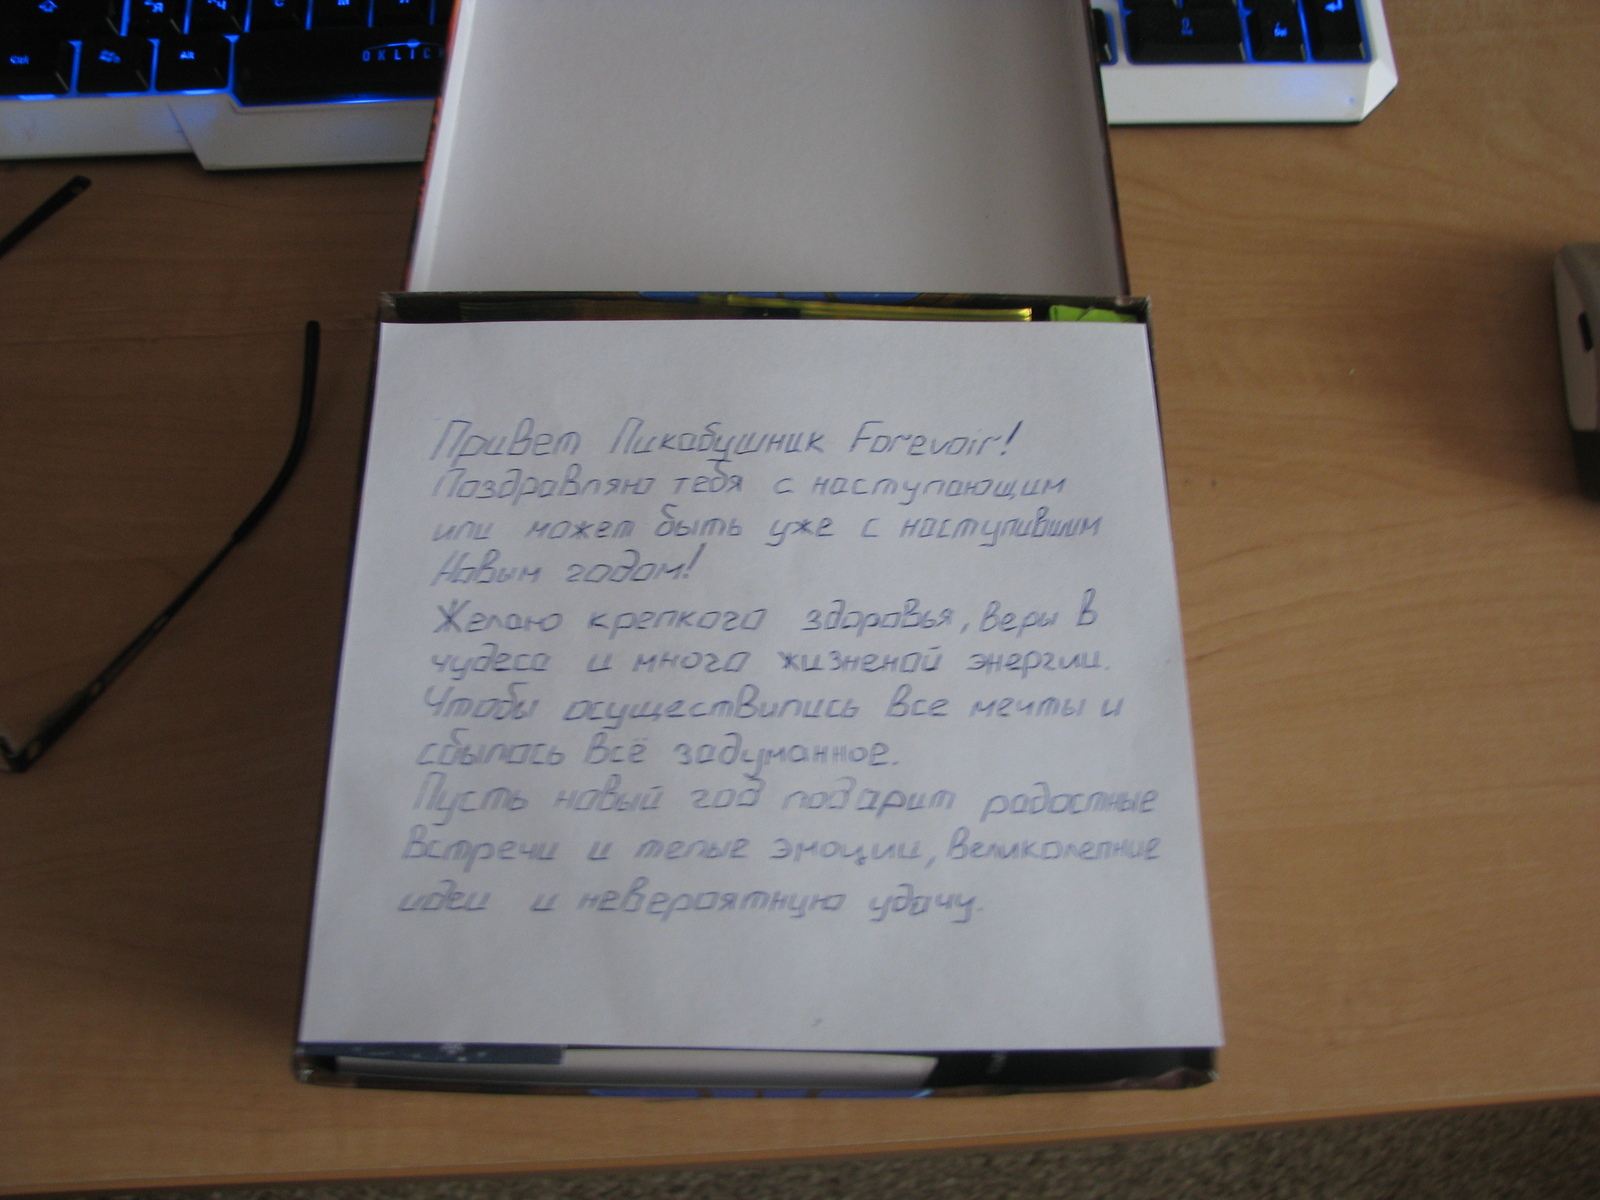 OKLICK
Привет Пикабушник Forevoir!
Поздравляю тебя с наступающим
или может быть уже с наступившим
Новым годом!
Желаю крепкого здоровья, веры в
чудеса и много жизненой энергии.
Чтобы осуществились все мечты и
сбылось всё задуманное.
Пусть новый год подарит радостные
встречи и теплые эмоции, великолепние
идеи и невероятную удачу.